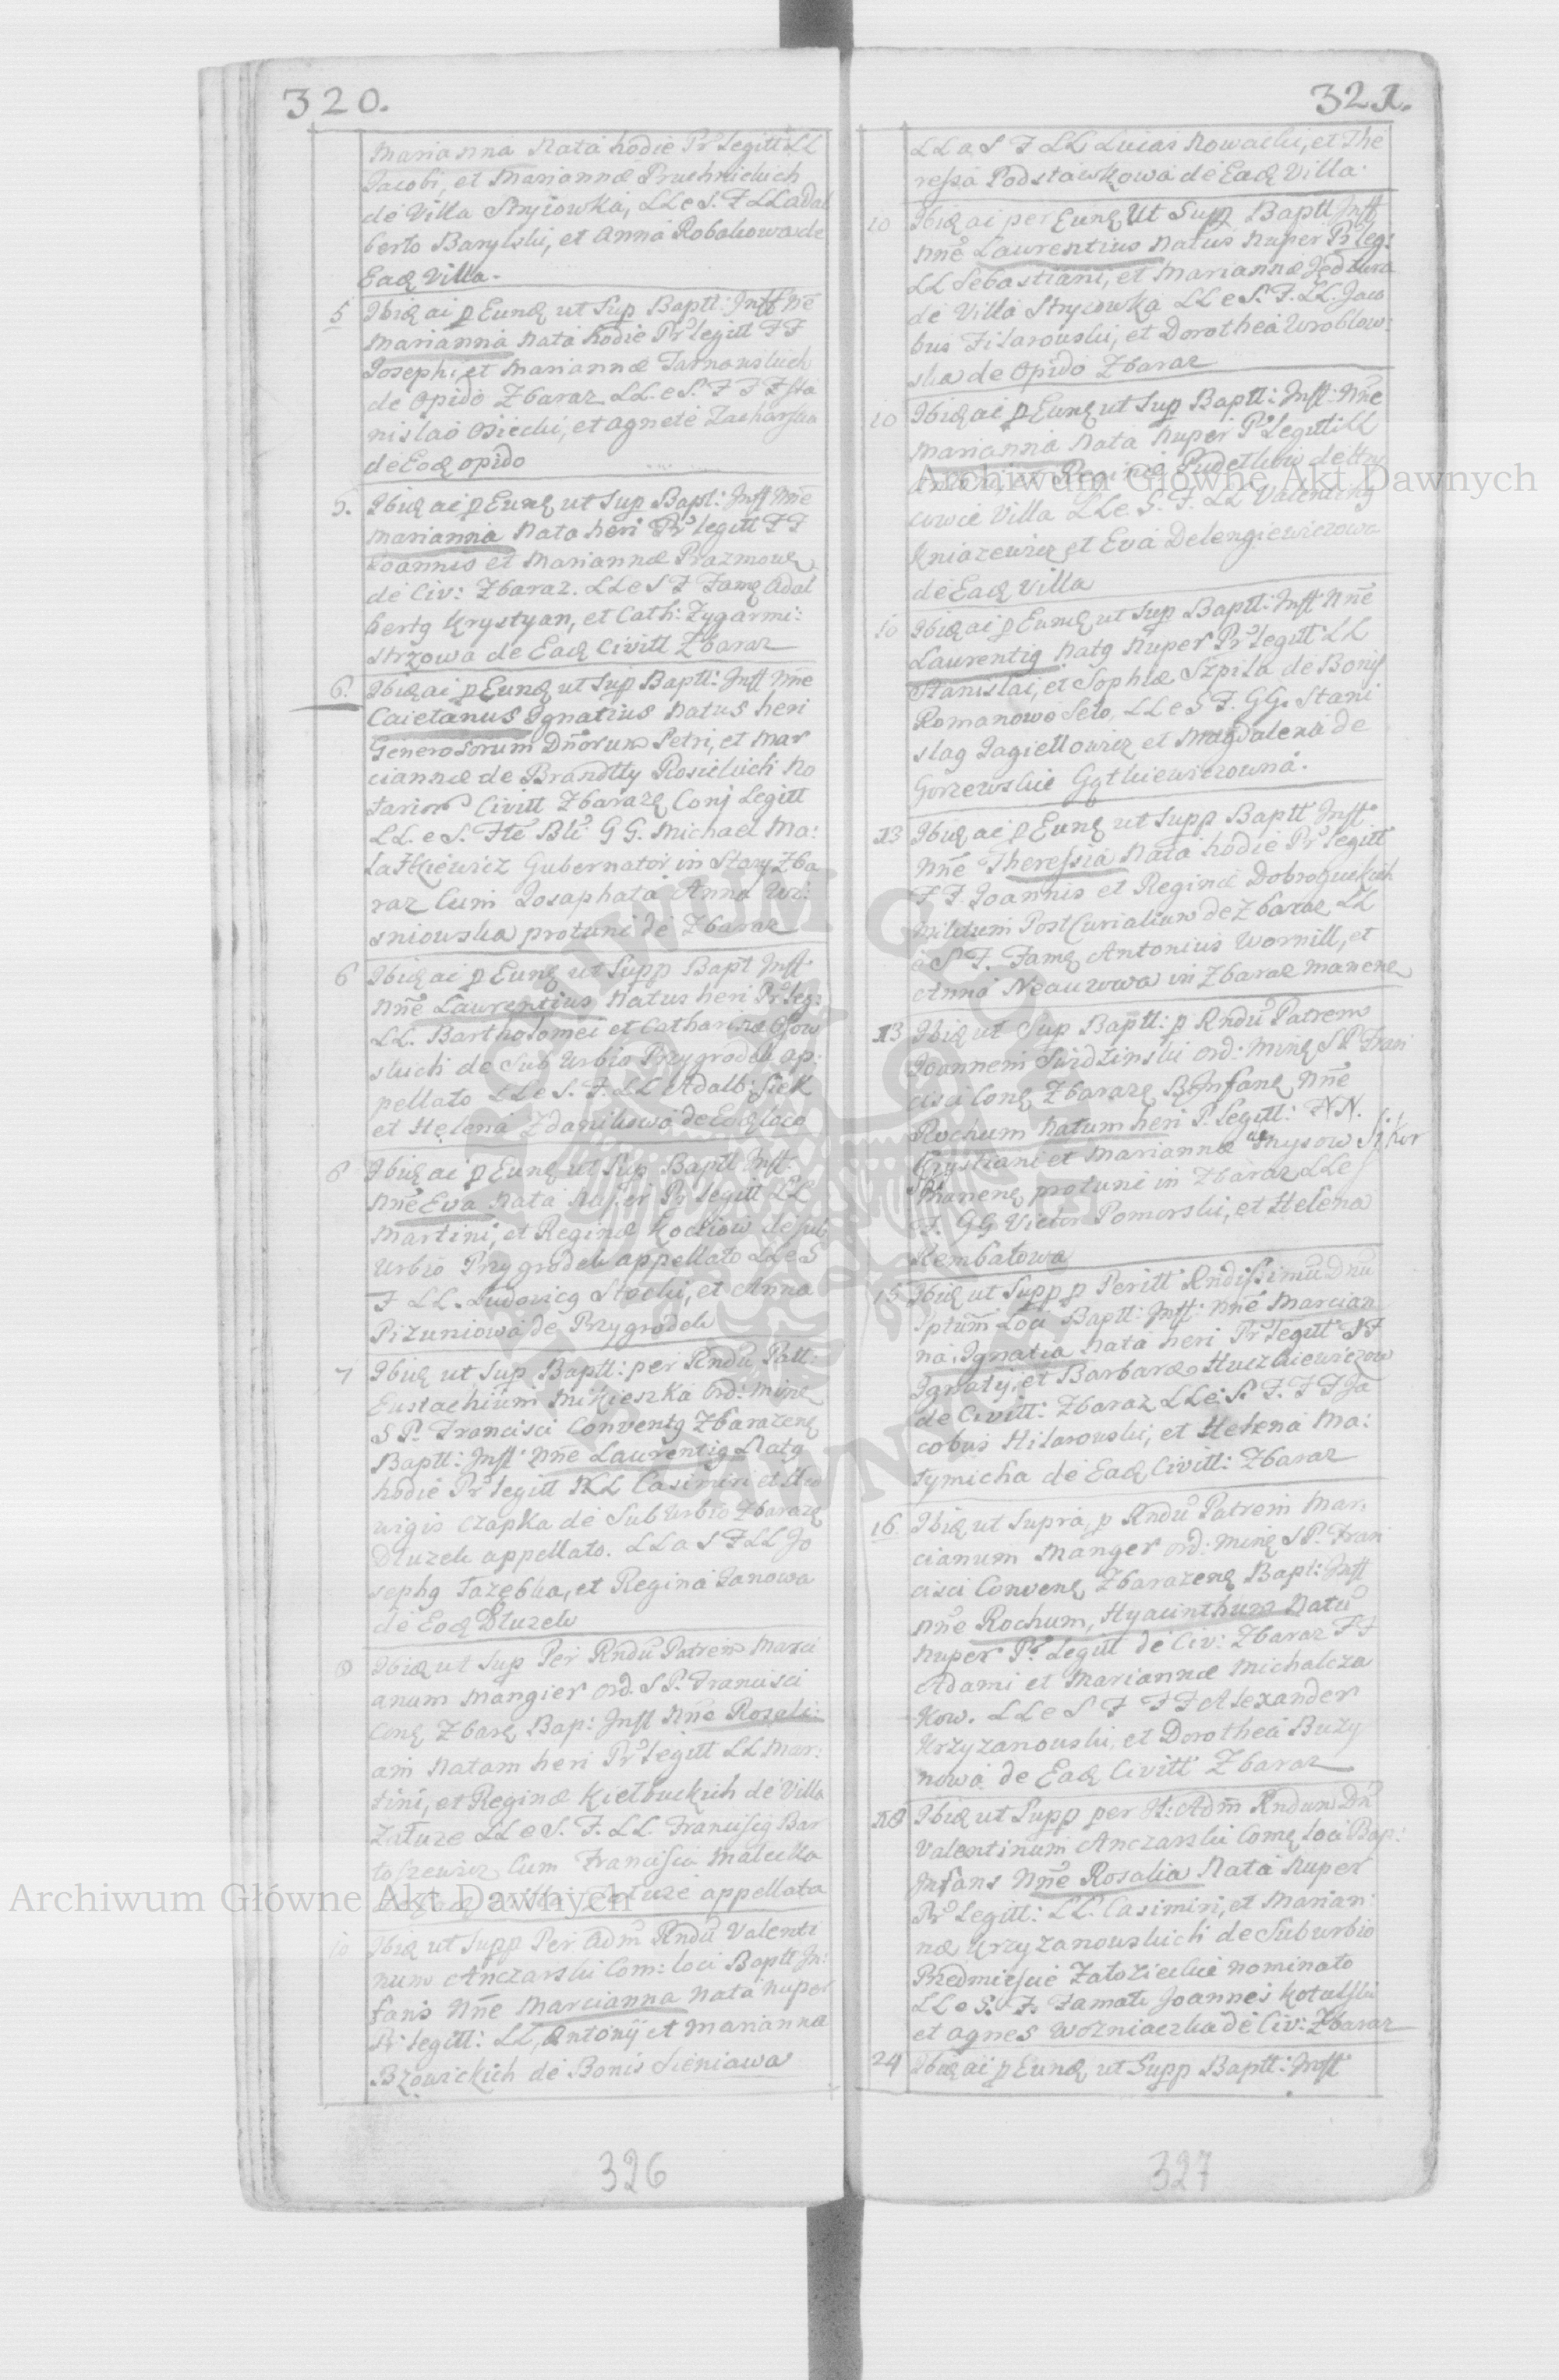 320.
Marianna Nata hodie Pr Legitt LL
Jacobi, et Mariannæ Pruchnickich
de Villa Stryiowka, LL e S. F LL Adal
berto Barylski, et Anna Robakowa de
Eaq Villa.
5 Ibiq ai p Eunq ut Sup Baptt: Inff Nne
Marianna Nata hodie Pr Legitt FF
Josephi et Mariannæ Tarnowskich
de Opido Zbaraz LL. e S. F F F Sta
nislao Osiecki, et Agnete Zacharska
de Eaq opido
5. Ibiq ai p Eunq ut Sup Bapt: Inff Nne
Marianna Nata heri Pr Legitt FF
Joannis et Mariannæ Prazmowq
de Civ: Zbaraz. LL e S F Famq Adal
bertq Krystyan, et Cath: Zygarmi:
strzowa de Eaq Civitt Zbaraz
6. Ibiq ai p Eunq ut Supp Baptt: Inff Nne
Caietanus Ignatius Natus heri
Generosorum Dnorum Petri, et Mar
ciannæ de Brandtly Rosickich No
tarior Civitt Zbarazq Conj Legitt
LL. e S. Fte Bte GG. Michael Ma:
Gubernator in Stary Zba
raz Cum Josaphata Anna Wi:
sniowska protunc de Zbaraz
6 Ibiq ai p Eunq ut Supp Bapt Inff
Nne Laurentius Natus heri Pr Leg:
LL. Bartholomei et Catharinæ
skich de Sub Urbio Przygrodek ap:
pellato LL e S. F. LL Adalb: Siek
et Helena Zdanikowa de Eoq loco
6 Ibiq ai p Eunq ut Sup Baptt Inff:
Nne Eva Nata Nuper Pr Legitt LL
Martini, et Reginæ Kockow de sub
Urbio Przygrodek appellato LL e S
F LL. Ludovicq Stocki, et Anna
Pizuniowa de Przygrodek
7 Ibiq ut Sup Baptt: per Rndu Patt:
Eustachium Mikieszka Ord: Minq
S P. Francisci Conventq Zbarazenq
Baptt: Inff: Nne Laurentiq Natq
hodie Pr Legitt LL Casimiri et Hed
wigis Czapka de Sub Urbio Zbarazq
Dluzek appellato. LL a S F LL Jo
sephq Tazebka, et Regina Janowa
de Eoq Dluzek
Ibiq ut Sup Per Rndu Patrem Marci
anum Mangier Ord. S P. Francisci
Conq Zbarq Bap: Inff Nne Rosali:
am Natam heri Pr Legitt LL Mar:
tini, et Reginæ Kielbuckich de Villa
Zaluze LL e S. F. LL. Franciscq Bar
toszewicz Cum Francisca Malecka
appellata
10 Ibiq ut Supp Per Adm Rndu Valenti
num Anczarski Com: loci Baptt In:
fans Nne Marcianna Nata Nuper
Pr Legitt: LL, Antonij et Marianna
Bzowickich de Bonis Sieniawa
326
321.
LL a S F LL Lucas Nowacki, et The
ressa Podstawkowa de Eaq Villa.
10 Ibiq ai per Eunq Ut Supp Baptt Inff
Nne Laurentius Natus Nuper Pr Leg:
LL Sebastiani, et Mariannæ
de Villa Stryiowka LL e S. F. LL. Jaco
bus Filarowski, et Dorothea Wroblow:
ska de Opido Zbaraz
10 Ibiq ai p Eunq ut Sup Baptt: Inff: Nne
Marianna Nata Nuper Pr Legitt LL
et Regina Pudelkow de
Villa LL e S. F. LL Valentinq
Kniazewicz et Eva Delengiewiczowa
de Eaq Villa
10 Ibiq ai p Eunq ut Sup Baptt: Inff: Nne
Laurentiq Natq Nuper Pr Legitt LL
Stanislai, et Sophiæ Szpila de Bonis
Romanowo Selo, LL e S F. GG. Stani
slaq Jagiellowicz et Magdalena de
Gorzewskie
13 Ibiq ai p Eunq ut Supp Baptt Inff.
Nne Theressia Nata hodie Pr Legitt
FF Joannis et Reginæ
Militum Post Curialium de Zbaraz LL
e S F. Famq Antonius Wornill, et
Anna in Zbaraz manenq
13 Ibiq ut Sup Baptt: p Rndu Patrem
Joannem Swidzinski Ord: Minq S P Fran
cisci Conq Zbarazq B Infanq Nne
Rochum Natum heri P. Legitt: NN.
Krystiani et Mariannæ
manenq protunc in Zbaraz LL e S
F. GG Victor Pomorski, et Helena
Rembatowa
15 Ibiq ut Supp p Peritt Rndissimu Dnu
Loci Baptt: Inff: Nne Marcian
na, Ignatia Nata heri Pr Legitt FF
Ignatij, et Barbaræ Huczkiewiczow
de Civitt: Zbaraz LL e S. F. F F Ja
cobus Hilarowski, et Helena Ma:
tymicha de Eaq Civitt: Zbaraz
16. Ibiq ut Supra, p Rndu Patrem Mar.
cianum Manger Ord: Minq S P. Fran
cisci Convenq Zbarazenq Bapt: Inff
Nne Rochum, Hyacinthum Natu
Nuper Pr Legitt de Civ: Zbaraz FF
Adami et Mariannæ Michalcza
kow. LL e S F F F Alexander
Krzyzanowski, et Dorothea Buzy
nowa de Eaq Civitt Zbaraz
18 Ibiq ut Supp per Adm Rndum Dn
Valentinum Anczarski Comq loci Bap:
Infans Nne Rosalia Nata Nuper
Pr Legitt: LL. Casimiri, et Marian:
næ Krzyzanowskich de Suburbio
Przedmiescie Zalozieckie nominato
LL e S. F. Famati Joannes Kotalski
et Agnes Wozniaczka de Civ: Zbaraz
24 Ibiq ai p Eunq ut Supp Baptt: Inff:
327
Archiwum Główne Akt Dawnych
Archiwum Główne Akt Dawnych